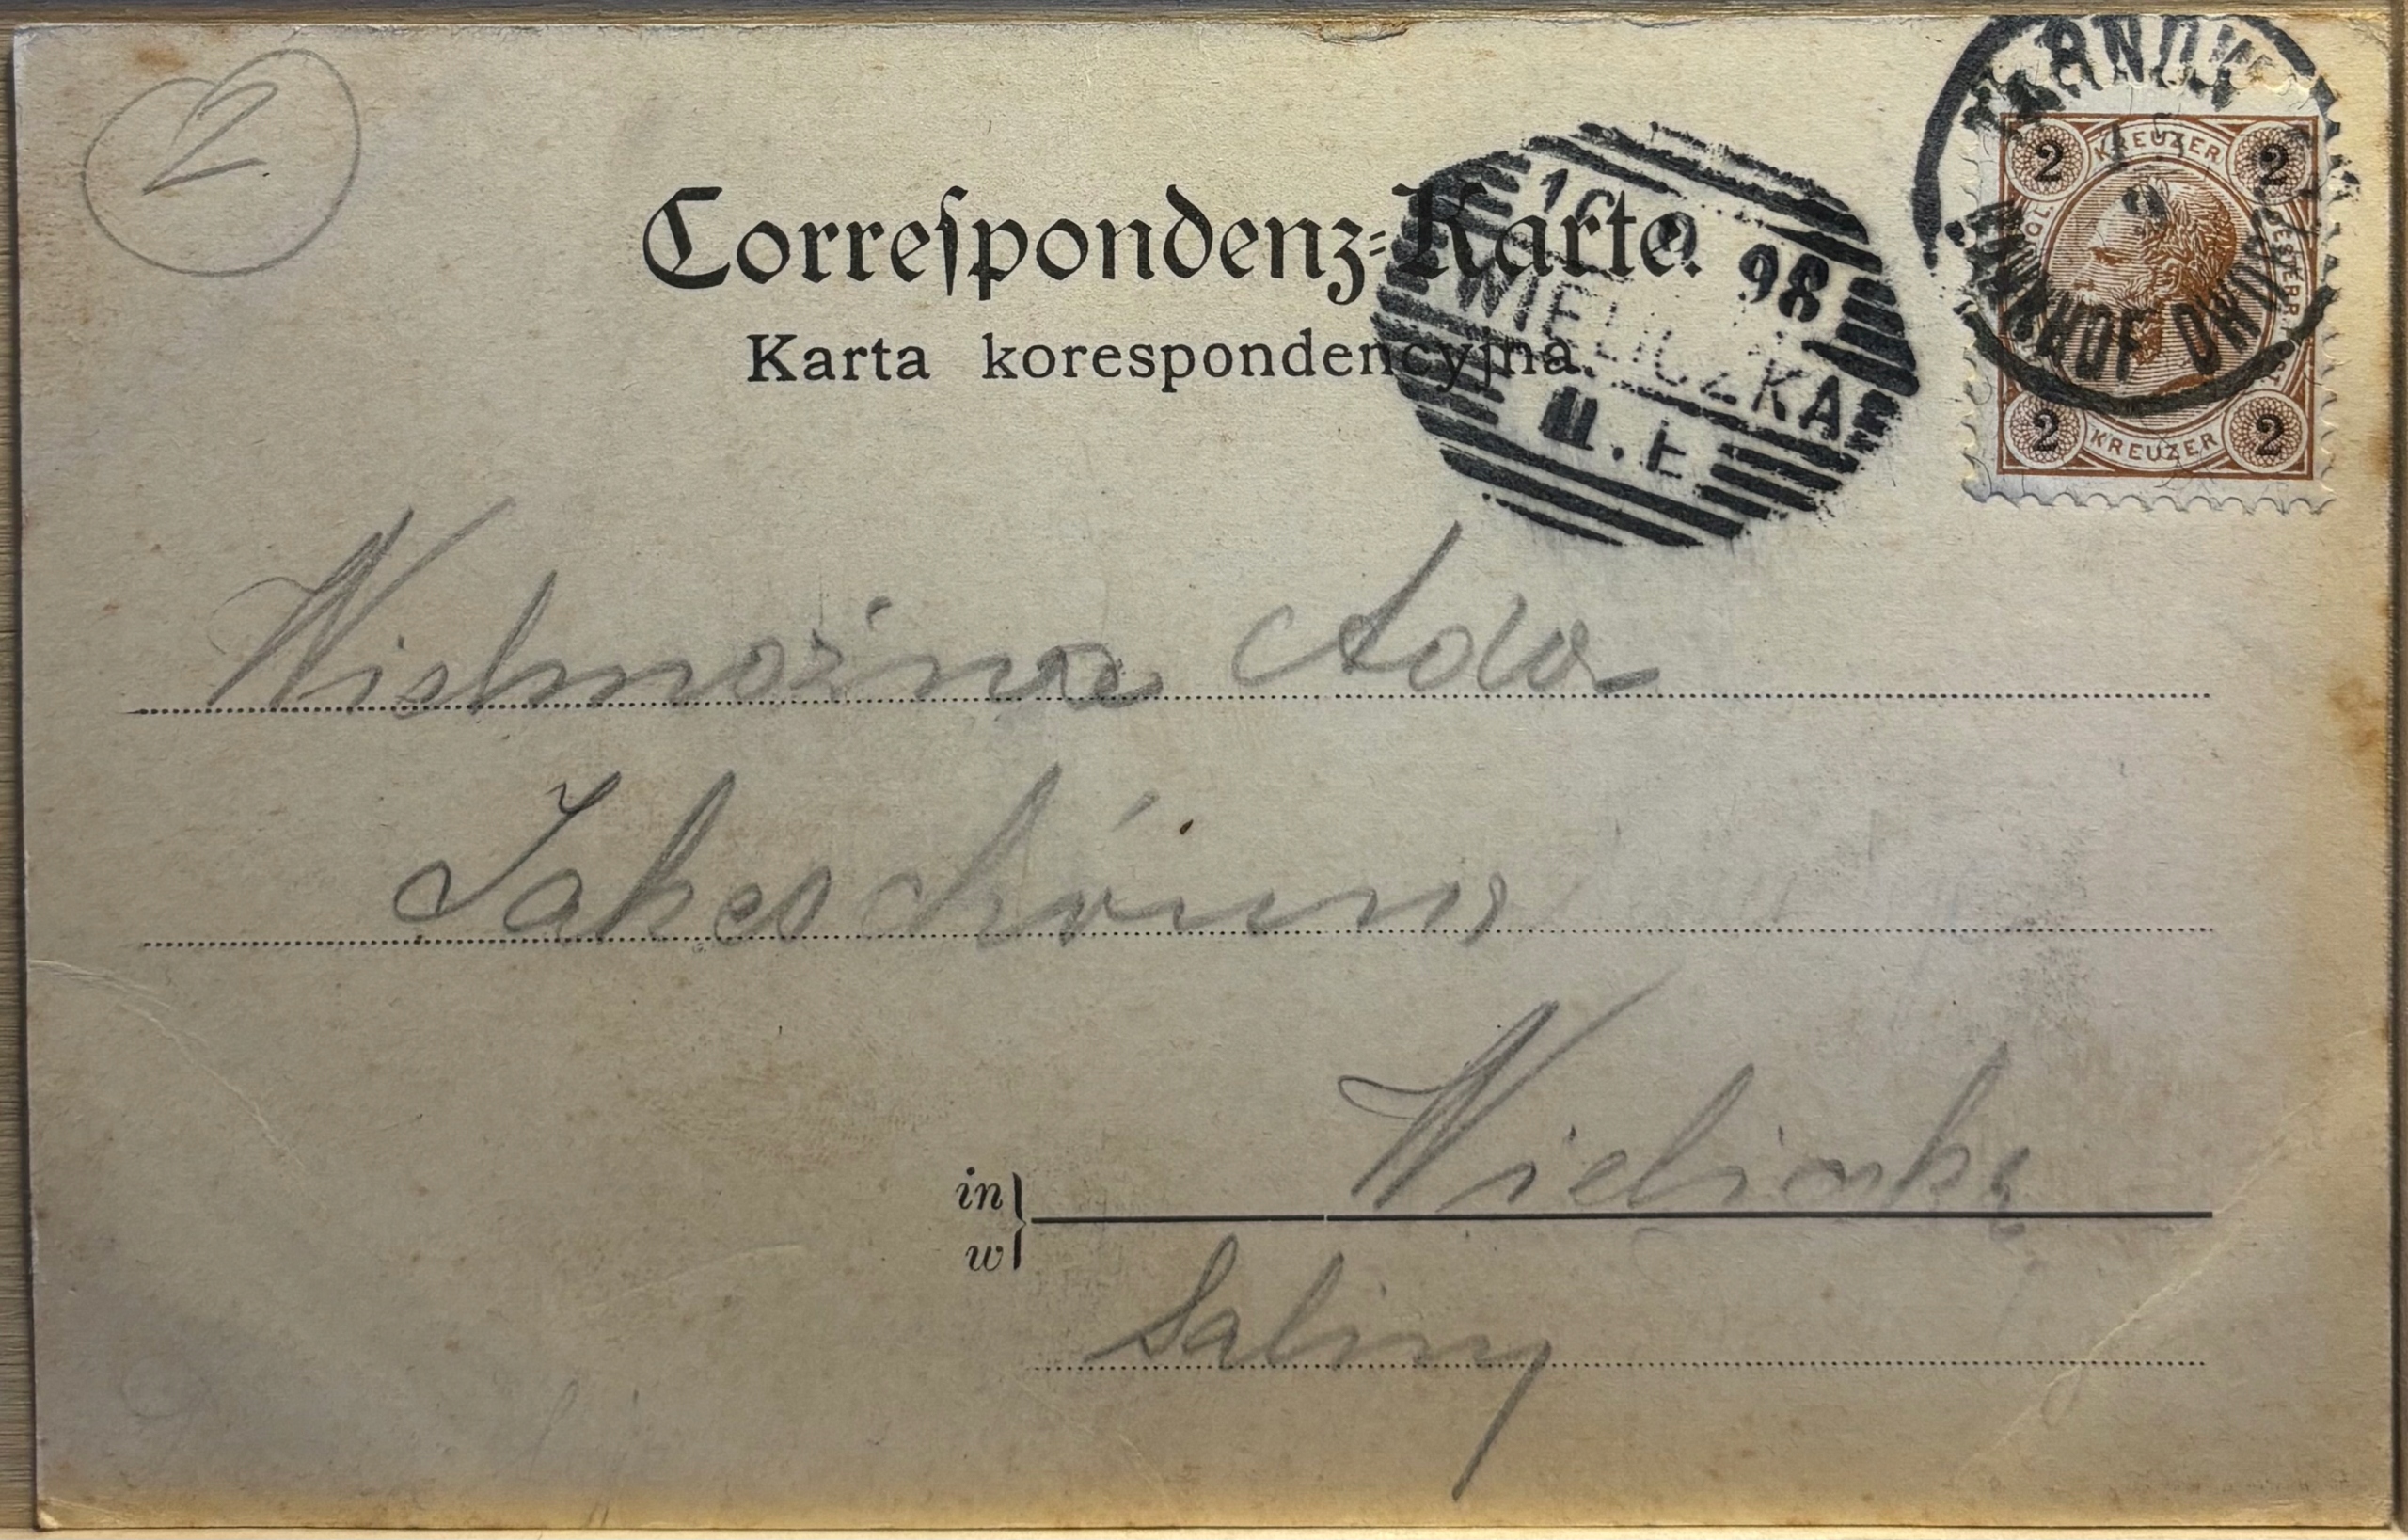 2
Correſpondenz-Karte.
Karta korespondencyjna.
98
WIELICZKA
TARNÓW
BAHNHOF DWORZEC
2 KREUZER 2
2 KREUZER 2
Wielmożna Ada
in
w
Wieliczka
Saliny